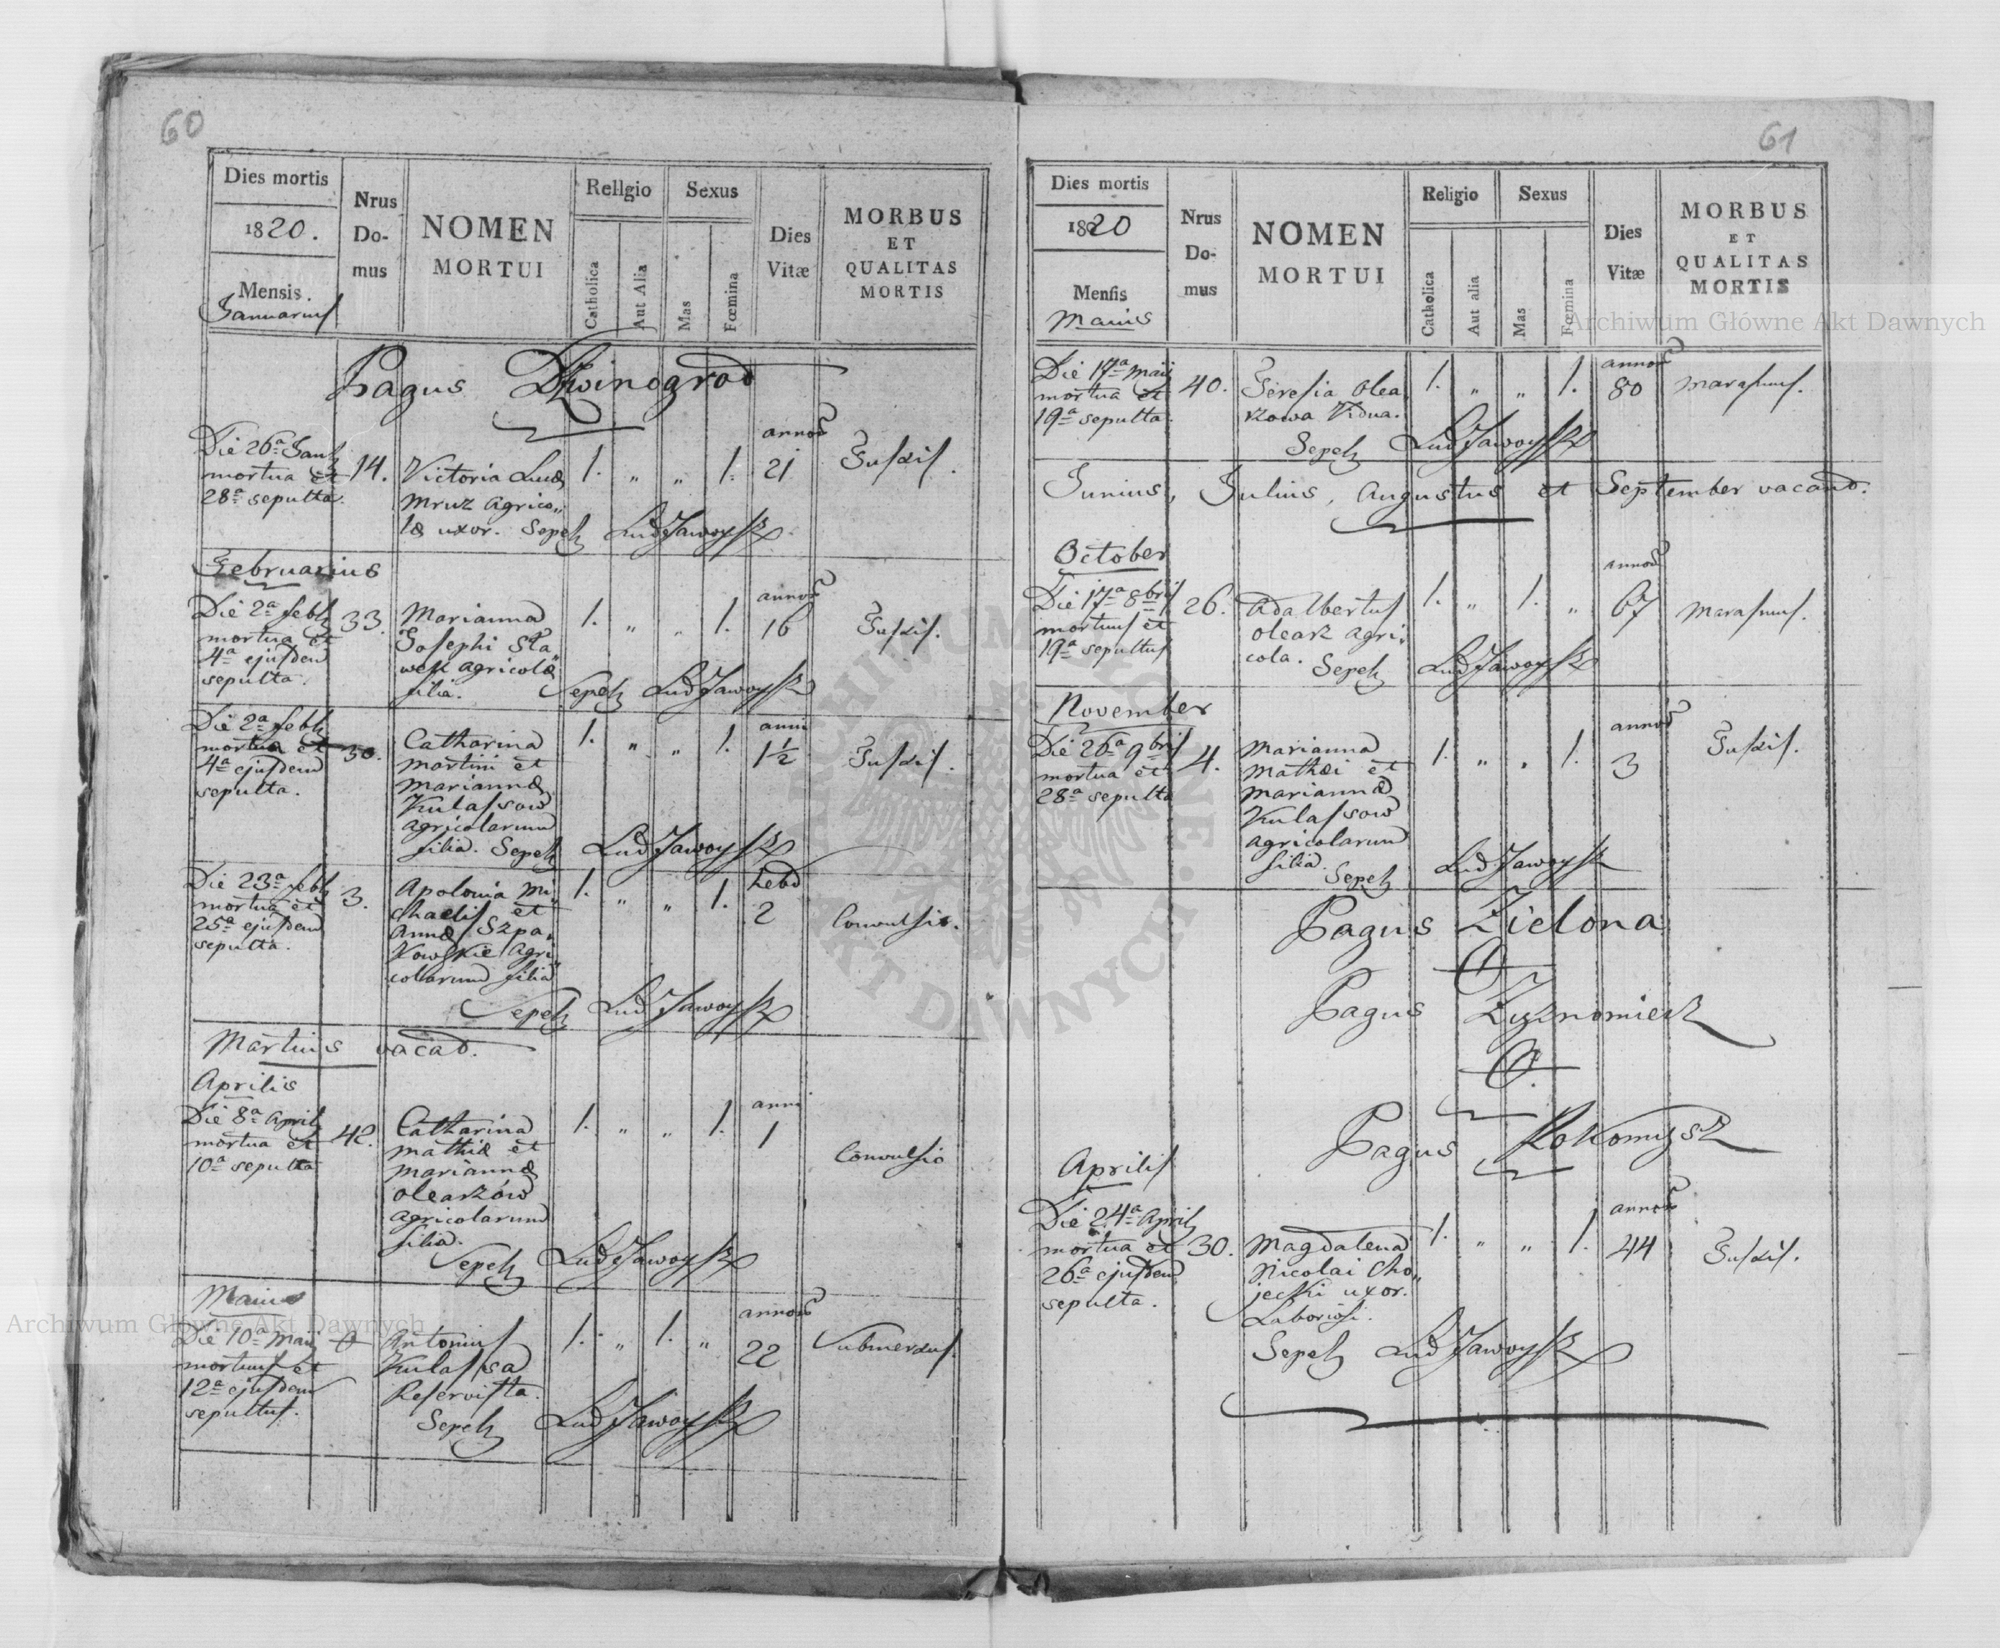 60
Dies mortis
1820.
Mensis.
Januarius
Nrus
Do-
mus
NOMEN
MORTUI
Religio
Catholica
Aut Alia
Sexus
Mas
Fœmina
Dies
Vitæ
MORBUS
ET
QUALITAS
MORTIS
Pagus Dzwinogrod
Die 26ª Janˡⁱ
mortua et
28ª sepulta.
14.
Victoria Lucæ
Mruz agrico„
læ uxor. Sepel
1. „ „ 1.
annor
21
Tussis.
Februarius
Die 2ª Feb
mortua et
4ª ejusdem
sepulta.
33.
Marianna
Josephi Sta
agricolæ
filia. Sepel
1. „ „ 1.
annor
16
Tussis.
Die 2ª Feb
mortua et
4ª ejusdem
sepulta.
30.
Catharina
Martini et
Mariannæ
Kulassow
agricolarum
filia. Sepel
1. „ „ 1.
anni
1½
Tussis.
Die 23ª Feb
mortua et
25ª ejusdem
sepulta.
3.
Apolonia Mi„
chaelis et
Annæ Szpa„
kowskie agri„
colarum filia
Sepel
1. „ „ 1.
hebd
2
Convulsio.
Martius vacat.
Aprilis
Die 8ª April
mortua et
10ª sepulta
42.
Catharina
Mathiæ et
Mariannæ
Olearzów
agricolarum
filia.
Sepel
1. „ „ 1.
anni
1
Convulsio
Maius
Die 10ª Maii
mortuus et
12ª ejusdem
sepultus.
0
Antonius
Kulassa
Reservista.
Sepel
1. „ 1. „
annor
22
Submersus.
61
Dies mortis
1820
Mensis
Maius
Nrus
Do-
mus
NOMEN
MORTUI
Religio
Catholica
Aut alia
Sexus
Mas
Fœmina
Dies
Vitæ
MORBUS
ET
QUALITAS
MORTIS
Die 17ª Maii
mortua et
19ª sepulta.
40.
Teresia Olea„
rzowa Vidua.
Sepel
1. „ „ 1.
annor
80
Marasmus.
Junius, Julius, Augustus et September vacant.
October
Die 17ª 8bris
mortuus et
19ª sepultus
26.
Adalbertus
Olearz agri„
cola. Sepel
1. „ 1. „
annor
67
Marasmus.
November
Die 26ª 9bris
mortua et
28ª sepulta
4.
Marianna
Mathæi et
Mariannæ
Kulassow
agricolarum
filia.
Sepel
1. „ „ 1.
annor
3
Tussis.
Pagus Zielona
0
Pagus Zyznomierz
0.
Pagus Rokomysz
Aprilis
Die 24ª April
mortua et
26ª ejusdem
sepulta.
30.
Magdalena
Nicolai Cho„
jecki uxor.
Laboriosi.
Sepel
1. „ „ 1.
annor
44
Tussis.
Archiwum Główne Akt Dawnych
Archiwum Główne Akt Dawnych
ARCHIWUM GŁÓWNE
AKT DAWNYCH